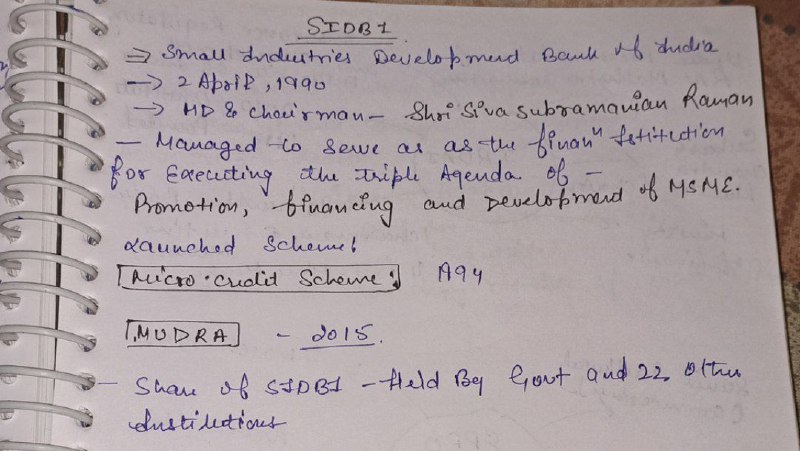 SIDBI
⇒ Small Industries Development Bank of India
→ 2 April, 1990
→ MD & Chairman - Shri Siva Subramanian Raman
- Managed to serve as as the finanⁿ Istitution
for Executing the Triple Agenda of -
Promotion, financing and Development of MSME.
Launched Scheme:
Micro-Credit Scheme: 1994
MUDRA - 2015.
- Share of SIDBI - Held By Govt and 22 other
Institutions